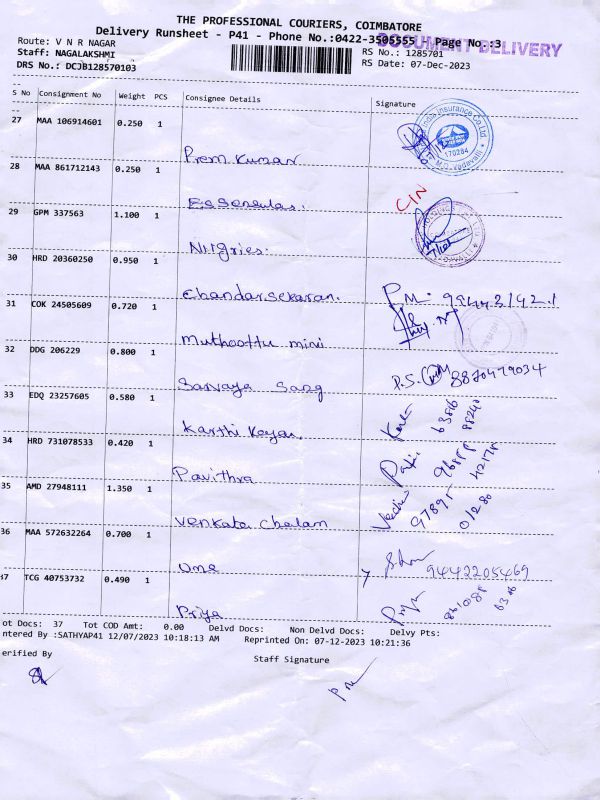 THE PROFESSIONAL COURIERS, COIMBATORE
Delivery Runsheet - P41 - Phone No.:0422-3505555 Page No.:3
DOCUMENT DELIVERY
Route: V N R NAGAR
RS No.: 1285701
Staff: NAGALAKSHMI
RS Date: 07-Dec-2023
DRS No.: DCJB128570103
S No Consignment No Weight PCS Consignee Details Signature
27 MAA 106914601 0.250 1
Prem Kumar
India Insurance Co.Ltd
170284
28 MAA 861712143 0.250 1
CIN
29 GPM 337563 1.100 1
Nilgries.
30 HRD 20360250 0.950 1
Chandarsekaran.
31 COK 24505609 0.720 1
Muthoottu mini
32 DDG 206229 0.800 1
Sarvaya Sang P.S. 8870479034
33 EDQ 23257605 0.580 1
Karthi Keyan
34 HRD 731078533 0.420 1
Pavithra
35 AMD 27948111 1.350 1
Venkata Chalam
36 MAA 572632264 0.700 1
Uma 9442205469
37 TCG 40753732 0.490 1
Priya
ot Docs: 37 Tot COD Amt: 0.00 Delvd Docs: Non Delvd Docs: Delvy Pts:
ntered By :SATHYAP41 12/07/2023 10:18:13 AM Reprinted On: 07-12-2023 10:21:36
erified By Staff Signature